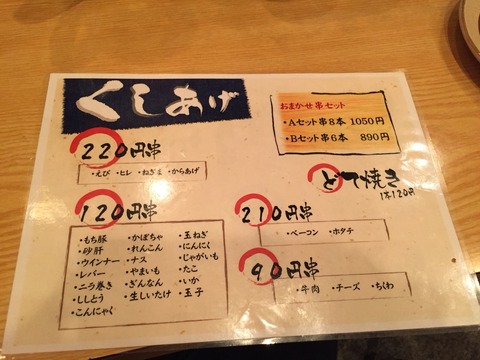 くしあげ
おまかせ串セット
・Aセット串8本 1050円
・Bセット串6本 890円
220円串
・えび ・ヒレ ・ねぎま ・からあげ
どて焼き
1本120円
120円串
・もち豚 ・かぼちゃ ・玉ねぎ
・砂肝 ・れんこん ・にんにく
・ウインナー ・ナス ・じゃがいも
・レバー ・やまいも ・たこ
・ニラ巻き ・ぎんなん ・いか
・ししとう ・生しいたけ ・玉子
・こんにゃく
210円串
・ベーコン ・ホタテ
90円串
・牛肉 ・チーズ ・ちくわ